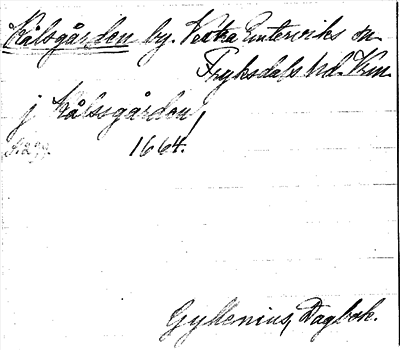 Kålsgården by. Västra Emterviks sn
Fryksdals hd. Vrm.
j Kålssgården!
S. 299. 1664.
Gyllenius, Dagbok.